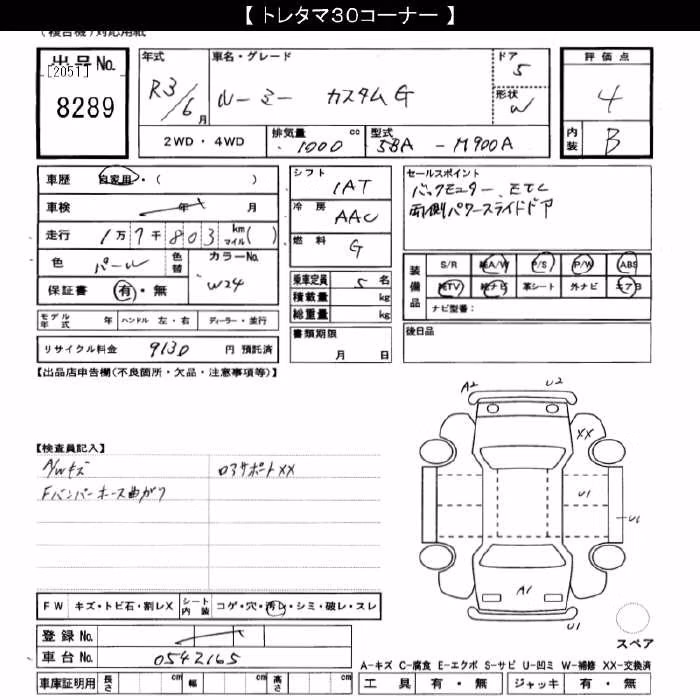 【 トレタマ30コーナー 】
(複合機)対応用紙
出品No. [2051] 8289
年式 R3/6月
車名・グレード ルーミー カスタムG
ドア 5
形状 W
評価点 4
内装 B
2WD・4WD
排気量 1000 cc
型式 5BA - M900A
車歴 自家用・( )
車検 年 月
走行 1万7千803 km マイル( )
色 パール
色替
カラーNo. W24
保証書 有・無
モデル年式 年 ハンドル 左・右 ディーラー・並行
リサイクル料金 9130 円 預託済
シフト IAT
冷房 AAC
燃料 G
乗車定員 5 名
積載量 kg
総重量 kg
書類期限 月 日
セールスポイント
バックモニター、ETC
両側パワースライドドア
装備品 S/R 純A/W P/S P/W ABS
純TV 純ナビ 革シート 外ナビ エアB
ナビ型番:
後日品
【出品店申告欄(不良箇所・欠品・注意事項等)】
【検査員記入】
A/Wキズ ロアサポートXX
Fバンパーホース曲がり
A2 U2
XX
U1
U1
A1
U1
スペア
FW キズ・トビ石・割レX シート内装 コゲ・穴・汚レ・シミ・破レ・スレ
登録No.
車台No. 0542165
車庫証明用 長さ cm 幅 cm 高さ cm
A-キズ C-腐食 E-エクボ S-サビ U-凹ミ W-補修 XX-交換済
工具 有・無 ジャッキ 有・無